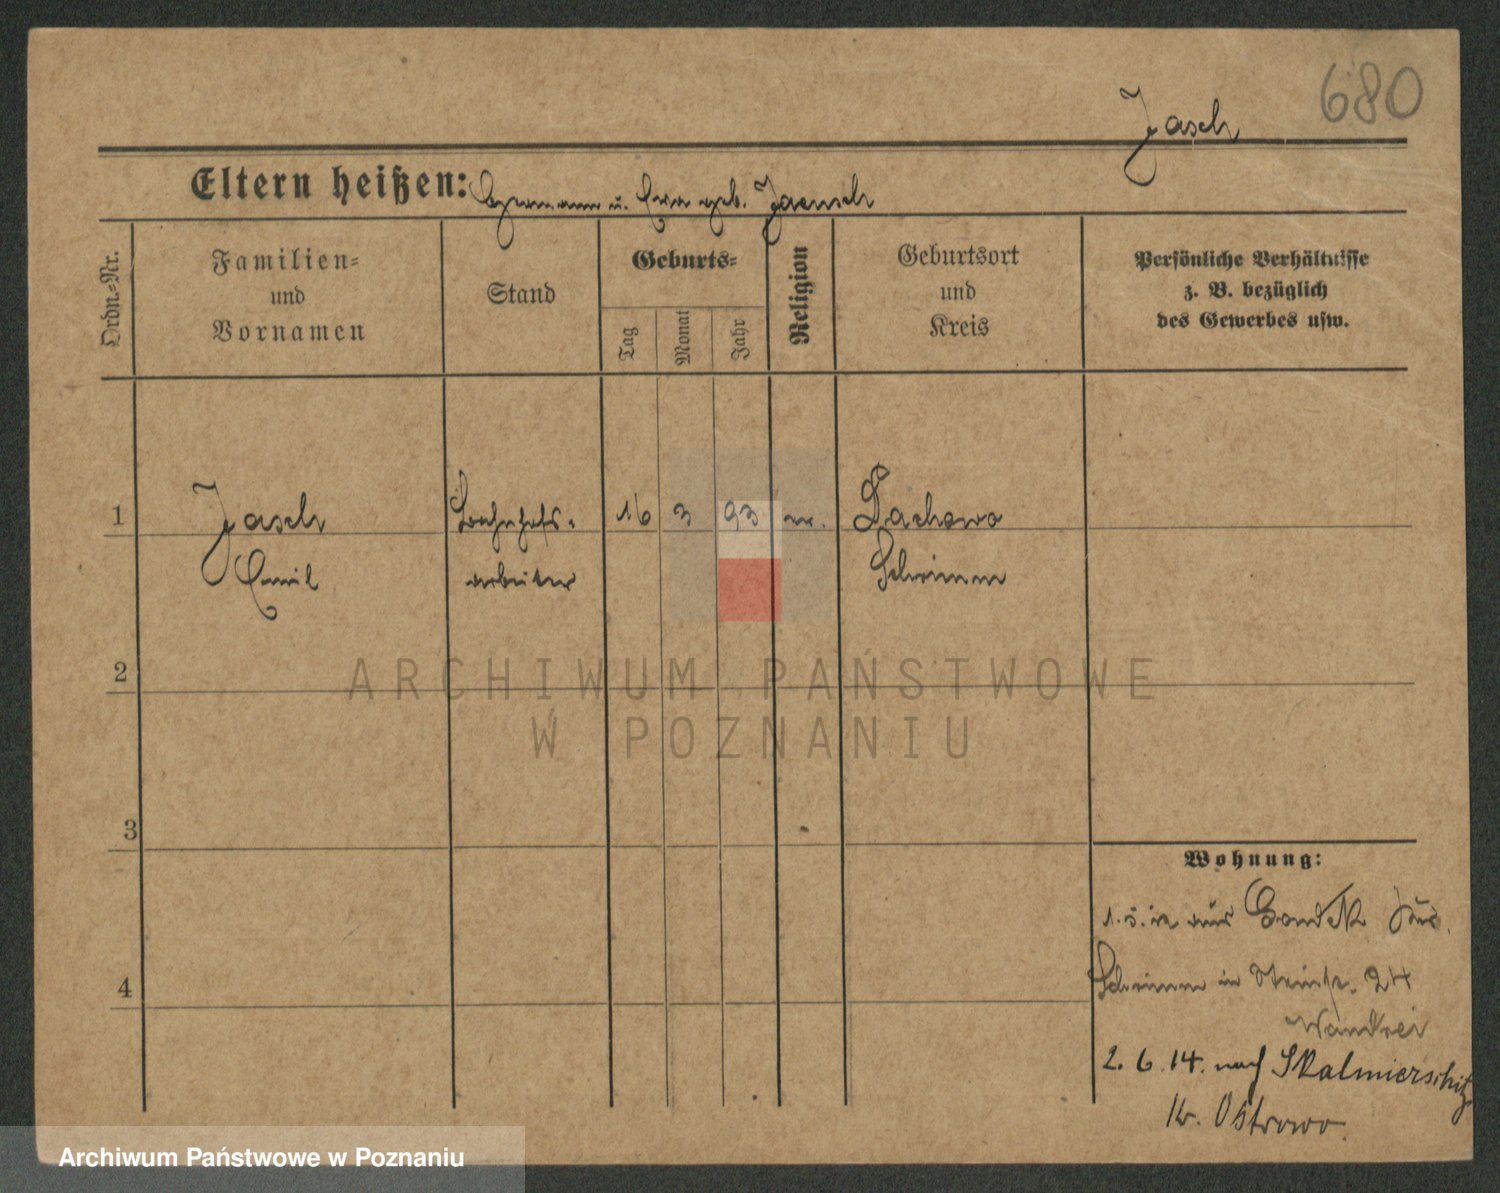 680
Jasch
Eltern heißen: Hermann u. Eva geb. Jaensch
Ordn.=Nr.
Familien=
und
Vornamen
Stand
Geburts=
Tag
Monat
Jahr
Religion
Geburtsort
und
Kreis
Persönliche Verhältnisse
z. B. bezüglich
des Gewerbes usw.
1
Jasch
Emil
Bahnhofs-
arbeiter
16 3 93
Dachowo
Schrimm
2
ARCHIWUM PAŃSTWOWE
W POZNANIU
3
Wohnung:
aus
4
Schrimm in 24
2. 6. 14. nach Skalmierschütz
Kr. Ostrowo.
Archiwum Państwowe w Poznaniu